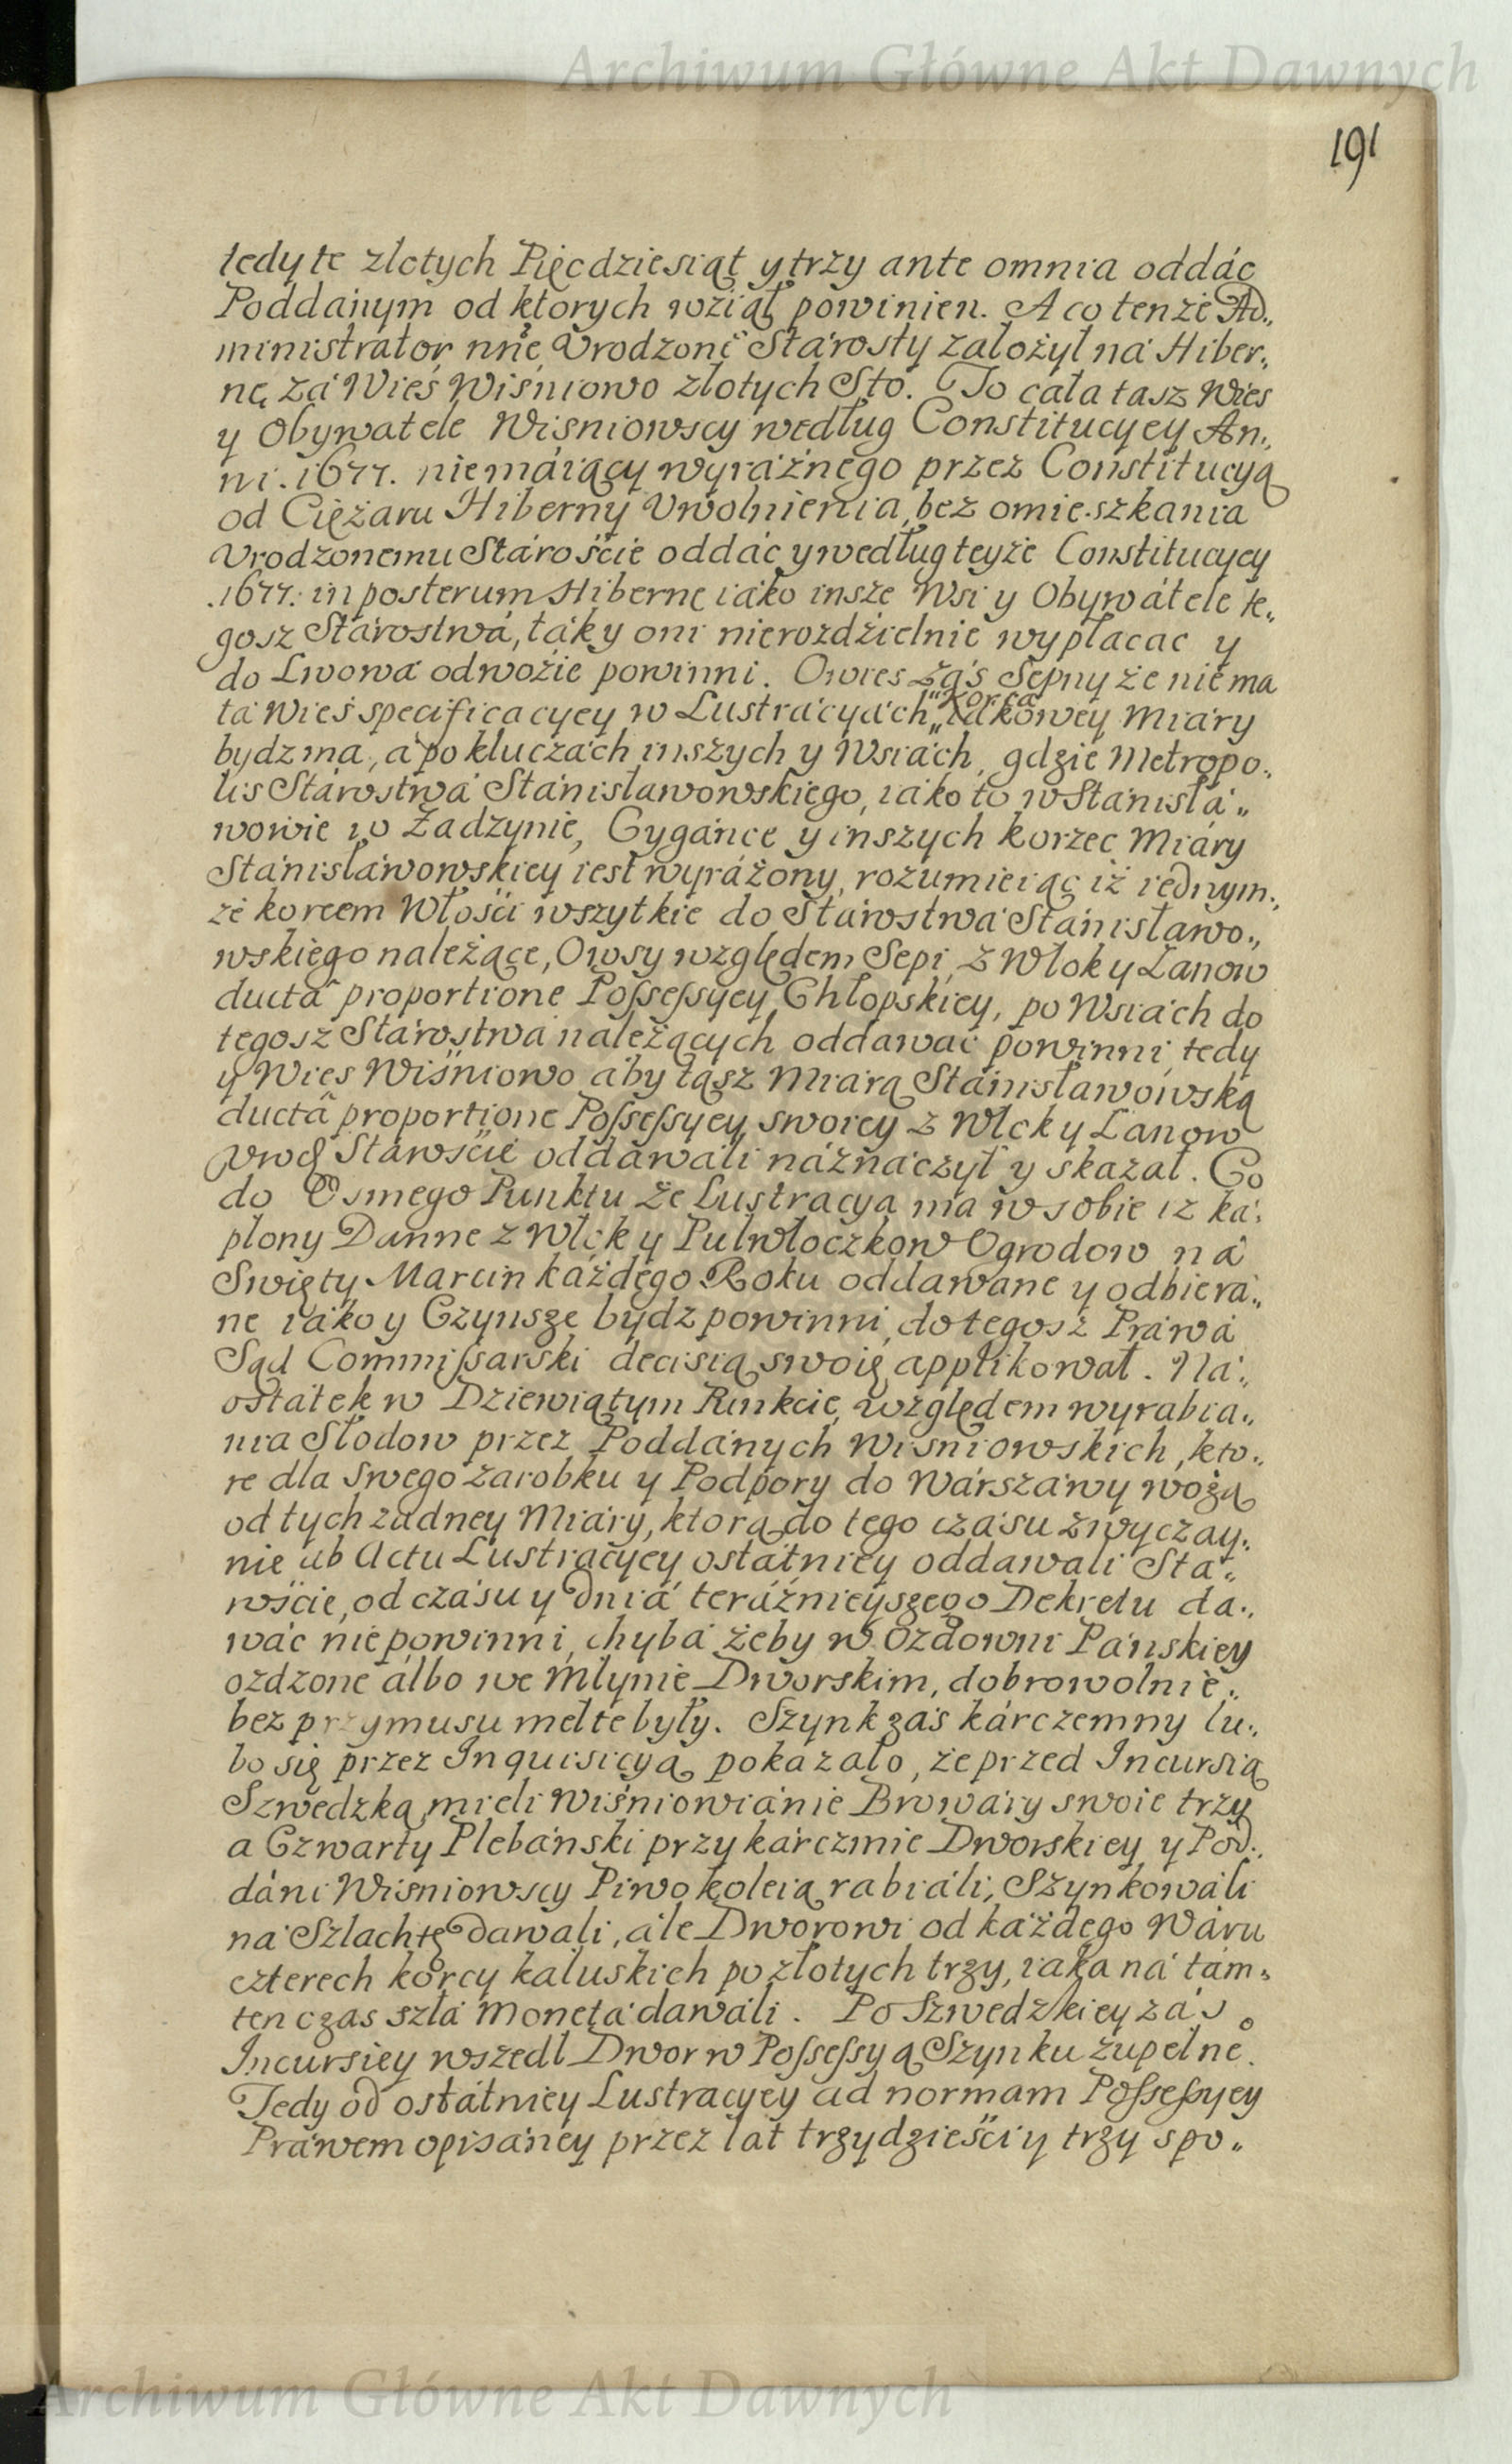 Archiwum Główne Akt Dawnych
191
tedy te zlotych Pięcdziesiąt y trzy ante omnia oddác
Poddánym od ktorych wziął powinien. A co tenże Ad„
ministrator nne Vrodzone Stárosty założył ná Hiber„
nę zá Wieś Wiśniowo złotych Sto. To cała tasz Wies
y Obywatele Wiśniowscy według Constitucyey An„
ni. 1677. niemáiący wyráźnego przez Constitucyą
od Ciężaru Hiberny Vwolnienia, bez omieszkania
Vrodzonemu Stárościie oddác y według teyże Constitucyey
.1677. in posterum Hibernę iáko insze Wsi y Obywátele te„
gosz Stárostwá, ták y oni nierozdźielnie wypłacac y
do Lwowá odwoźie powinni. Owies záś Sepny że nie ma
tá Wieś specificacyey w Lustrácyách „Korca iákowey Miáry
bydz ma, á po kluczách inszych y Wsiách, gdzie Metropo„
lis Stárostwá Stánisławowskiego, iáko to w Stánisłá„
wowie w Zadzynie, Cygánce y inszych korzec Miáry
Stánisláwowskiey iest wyráżony, rozumieiąc iż iednym„
że korcem Włości wszytkie do Stárostwá Stánisławo„
wskiego należące, Owsy względem Sepi, z Włok y Łanow
ductâ proportione Possessyey Chłopskiey, po Wsiách do
tegosz Stárostwá należących oddawác powinni, tedy
y Wies Wiśniowo áby tąsz Miarą Stánisławowską
ductâ proportione Possessyey swoiey z Włok y Łanow
Vrod Stárościie oddáwáli náznáczył y skazał. Co
do Osmego Punktu że Lustracya ma w sobie iz ká„
płony Danne z Włok y Pułwłoczkow Ogrodow ná
Swięty Marcin káżdego Roku oddawane y odbierá„
ne iáko y Czynsze bydz powinni, do tegosz Práwá
Sąd Commissarski decisią swoię applikował. Ná„
ostátek w Dziewiątym Punkcie, względem wyrabia„
nia Słodow przez Poddánych Wiśniowskich, kto„
re dla swego zarobku y Podpory do Wárszáwy wożą
od tych żadney Miáry, ktorą do tego czásu zwyczay„
nie ab Actu Lustrácyey ostátniey oddawali Stá„
rościie, od czásu y dniá teráźnieyszego Dekretu da„
wác nie powinni, chybá żeby w Ozdowni Páńskiey
ozdzone álbo we Młynie Dworskim, dobrowolnie„
bez przymusu mełte były. Szynk záś kárczemny lu„
bo się przez Inquisicyą pokazało, że przed Incursią
Szwedzką mieli Wiśniowiánie Browáry swoie trzy
a Czwarty Plebáński przy kárczmie Dworskiey y Pod„
dáni Wiśniowscy Piwo koleią rabiáli, Szynkowáli
ná Szlachtę dawali, ále Dworowi od káżdego Wáru
czterech korcy kałuskich po złotych trzy, iaka ná tám„
ten czas szłá Monetá dawáli. Po Szwedzkiey zás
Incursiey wszedł Dwor w Possessyą Szynku zupełnę.
Tedy od ostátniey Lustracyey ad normam Possessyey
Práwem opisáney przez lat trzydzieści y trzy spo„
Archiwum Główne Akt Dawnych